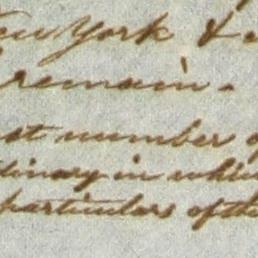 New York &
remain.
st number of
dinary in which
particulars of the